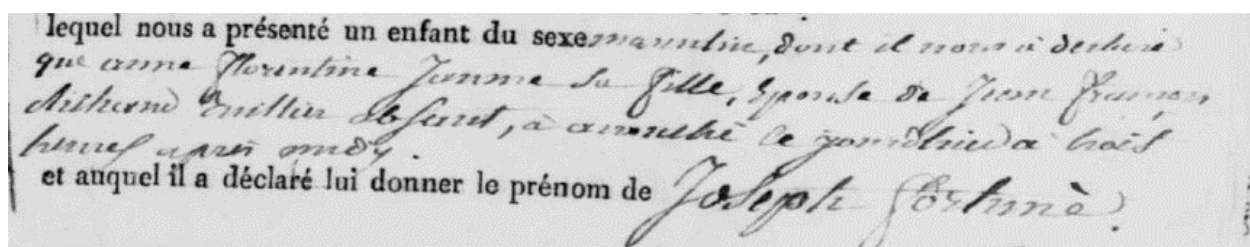 lequel nous a présenté un enfant du sexe masculin, dont il nous a déclaré
que anne florentine Jeanne sa fille, Epouse de Jean françois
absent, à accouché ce jourdhied à trois
heures après midy.
et auquel il a déclaré lui donner le prénom de Joseph fortuné.